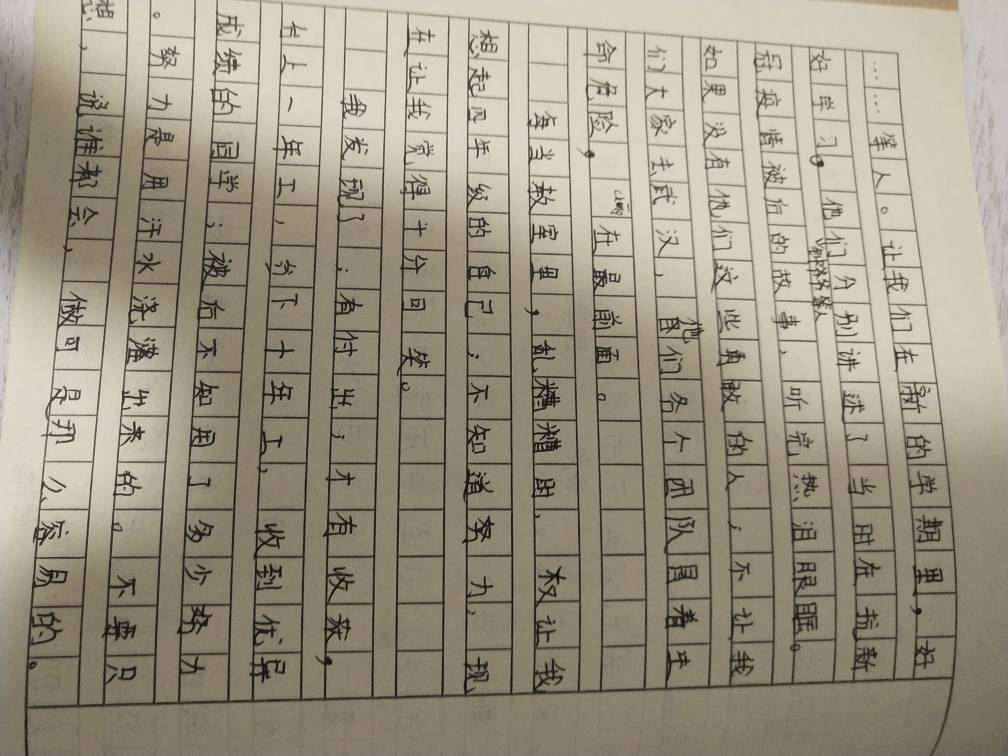 ……等人。让我们在新的学期里，好
好学习。他们分别讲述了当时在抗新
冠疫情被后的故事，听完热泪眼眶。
如果没有他们这些勇敢的人；不让我
们大家去武汉，他们各个团队冒着生
命危险，在最前面。
每当教室里，乱糟糟时，权让我
想起四年级的自己；不知道努力，现
在让我觉得十分可笑。
我发现了；有付出；才有收获，
台上一年工，台下十年工，收到优异
成绩的同学；被后不知用了多少努力
。努力是用汗水浇灌出来的。不要只
想，说谁都会，做可是那么容易的。